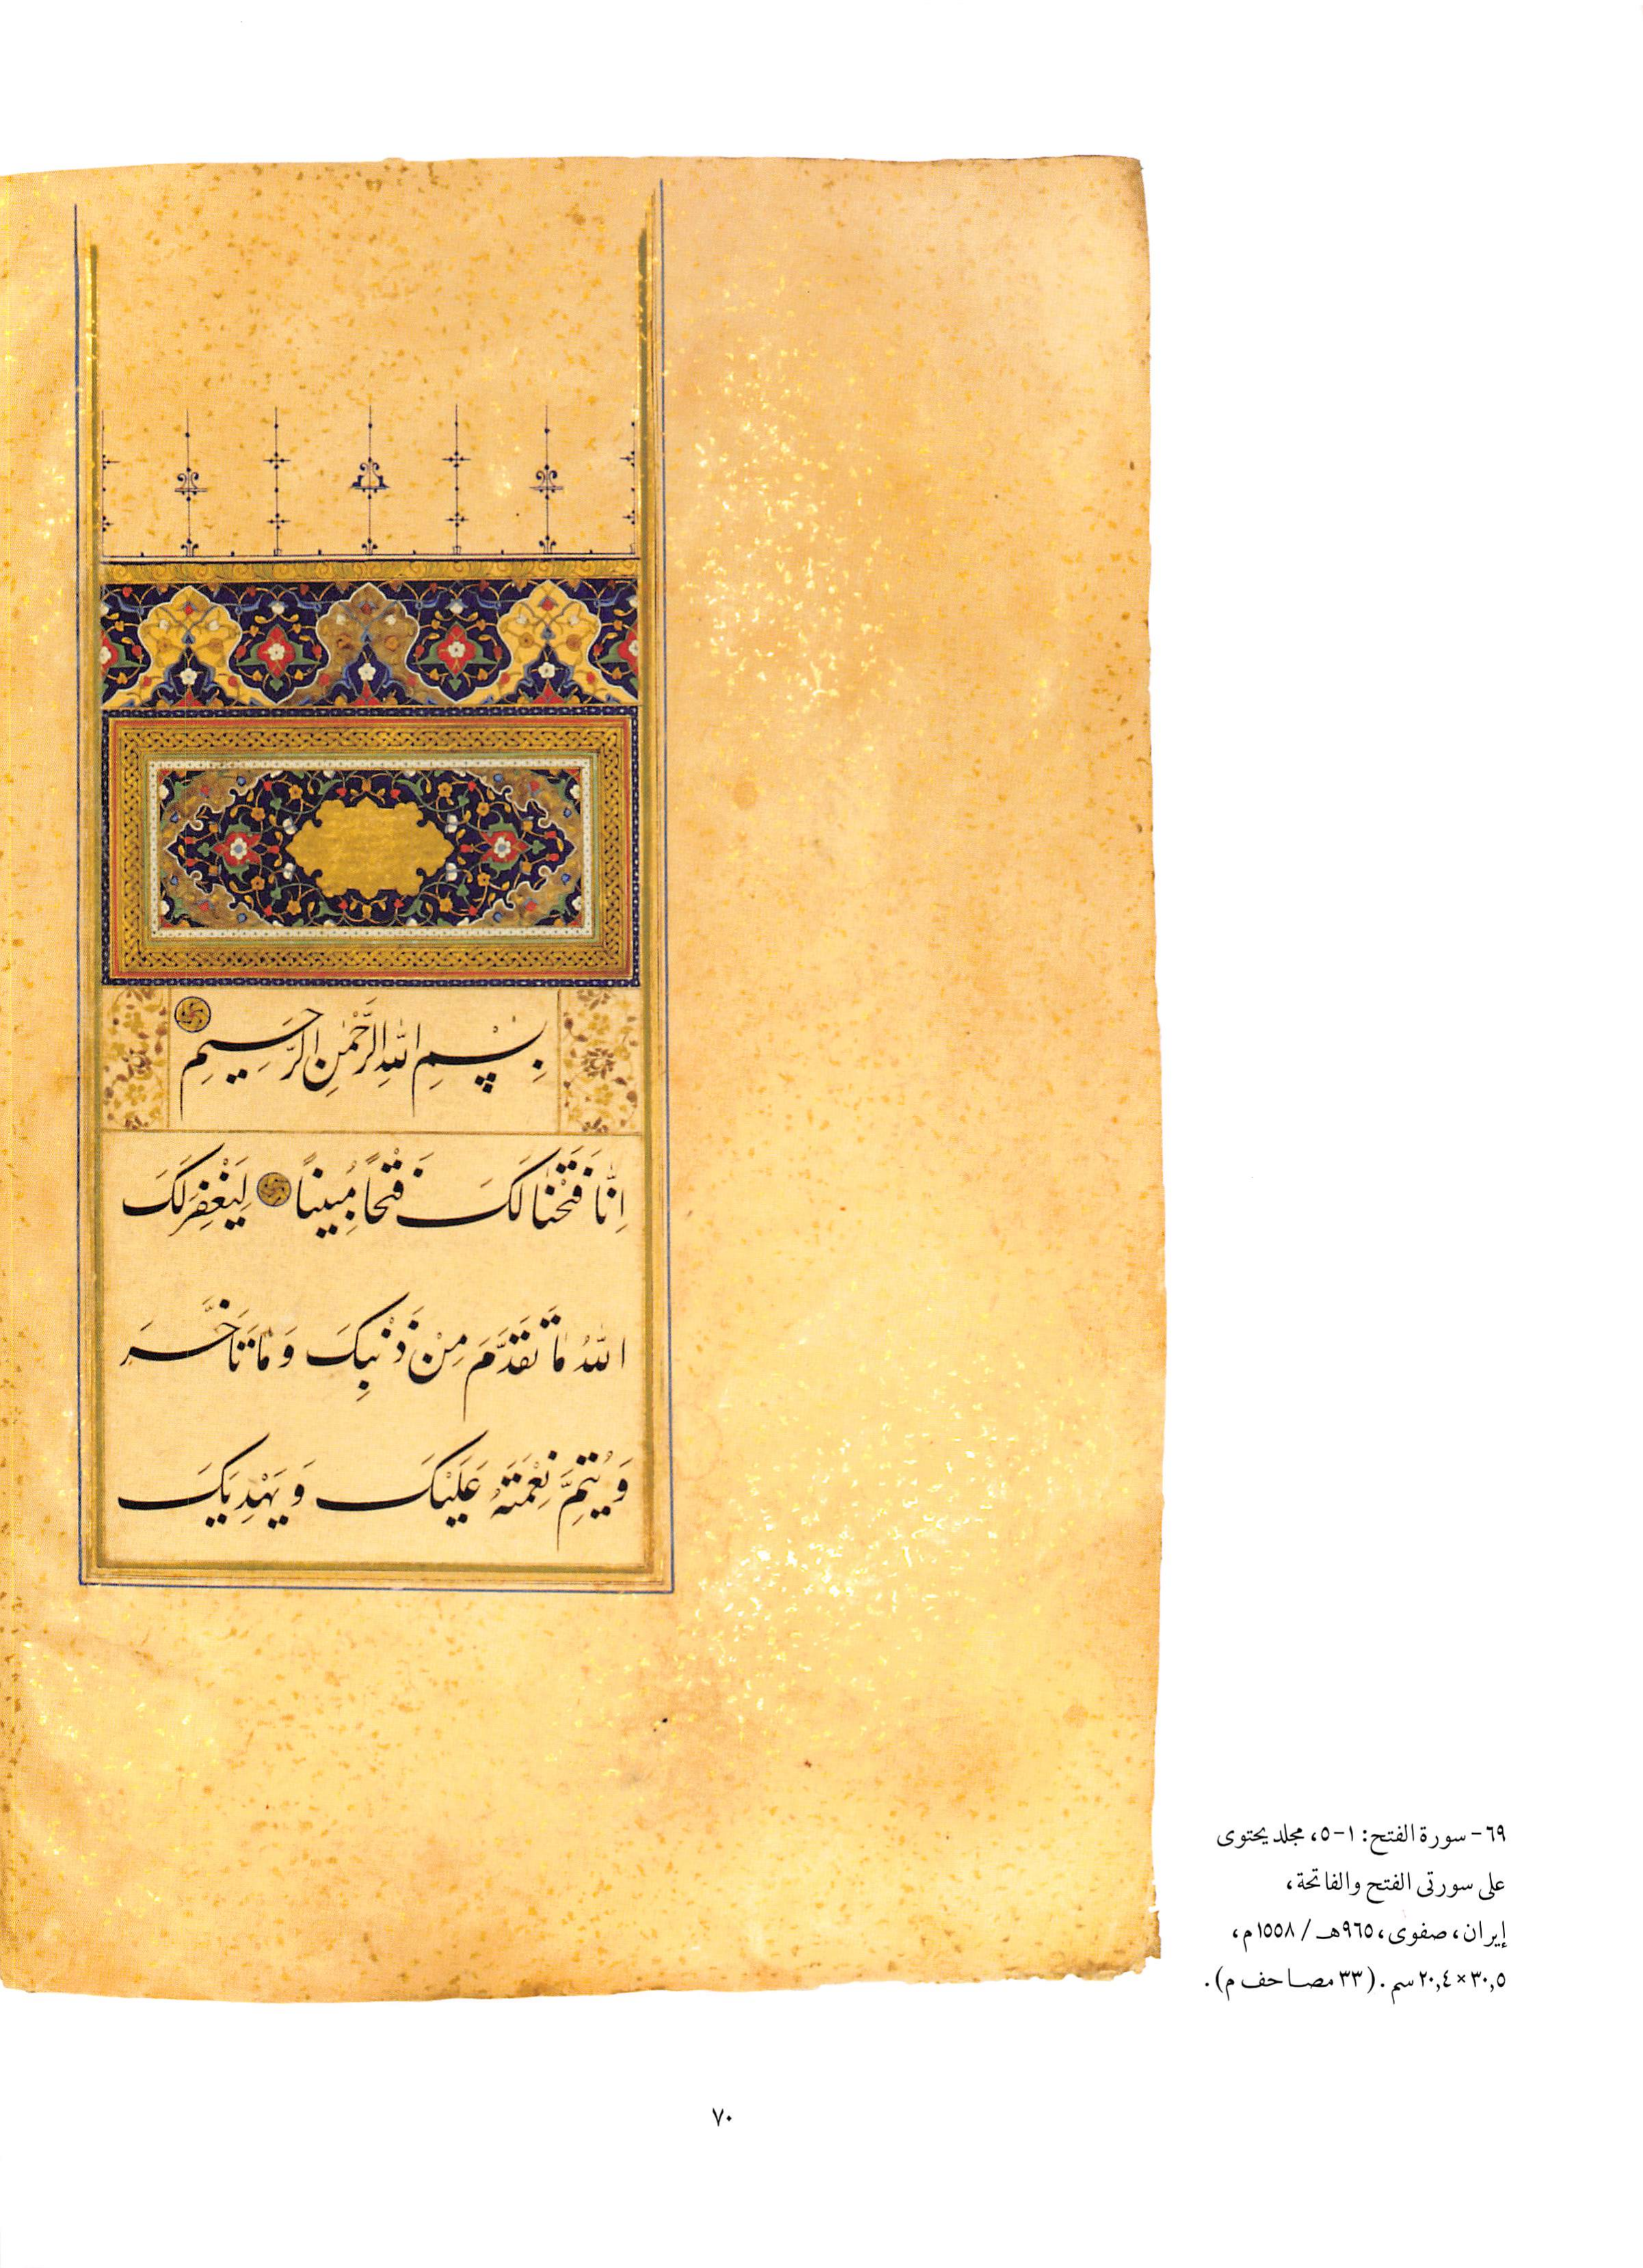 بِسْمِ اللهِ الرَّحْمٰنِ الرَّحِيمِ
اِنَّا فَتَحْنَا لَكَ فَتْحًا مُبِينًا لِيَغْفِرَ لَكَ
اللهُ مَا تَقَدَّمَ مِنْ ذَنْبِكَ وَمَا تَأَخَّرَ
وَيُتِمَّ نِعْمَتَهُ عَلَيْكَ وَيَهْدِيَكَ
٦٩- سورة الفتح: ١-٥، مجلد يحتوى
على سورتى الفتح والفاتحة،
إيران، صفوى، ٩٦٥هـ / ١٥٥٨م،
٣٠,٥ × ٢٠,٤ سم. (٣٣ مصاحف م).
٧٠